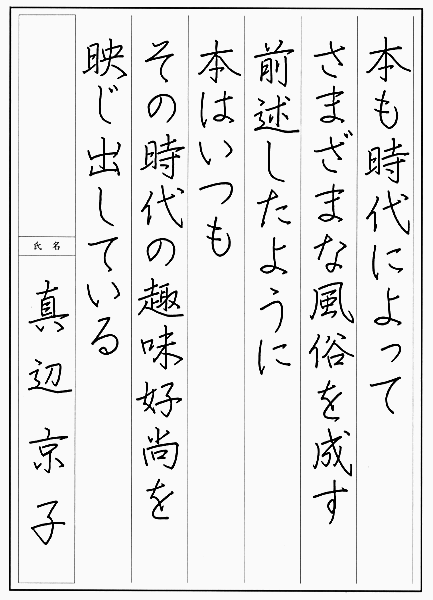 本も時代によって
さまざまな風俗を成す
前述したように
本はいつも
その時代の趣味好尚を
映じ出している
氏名
真辺京子